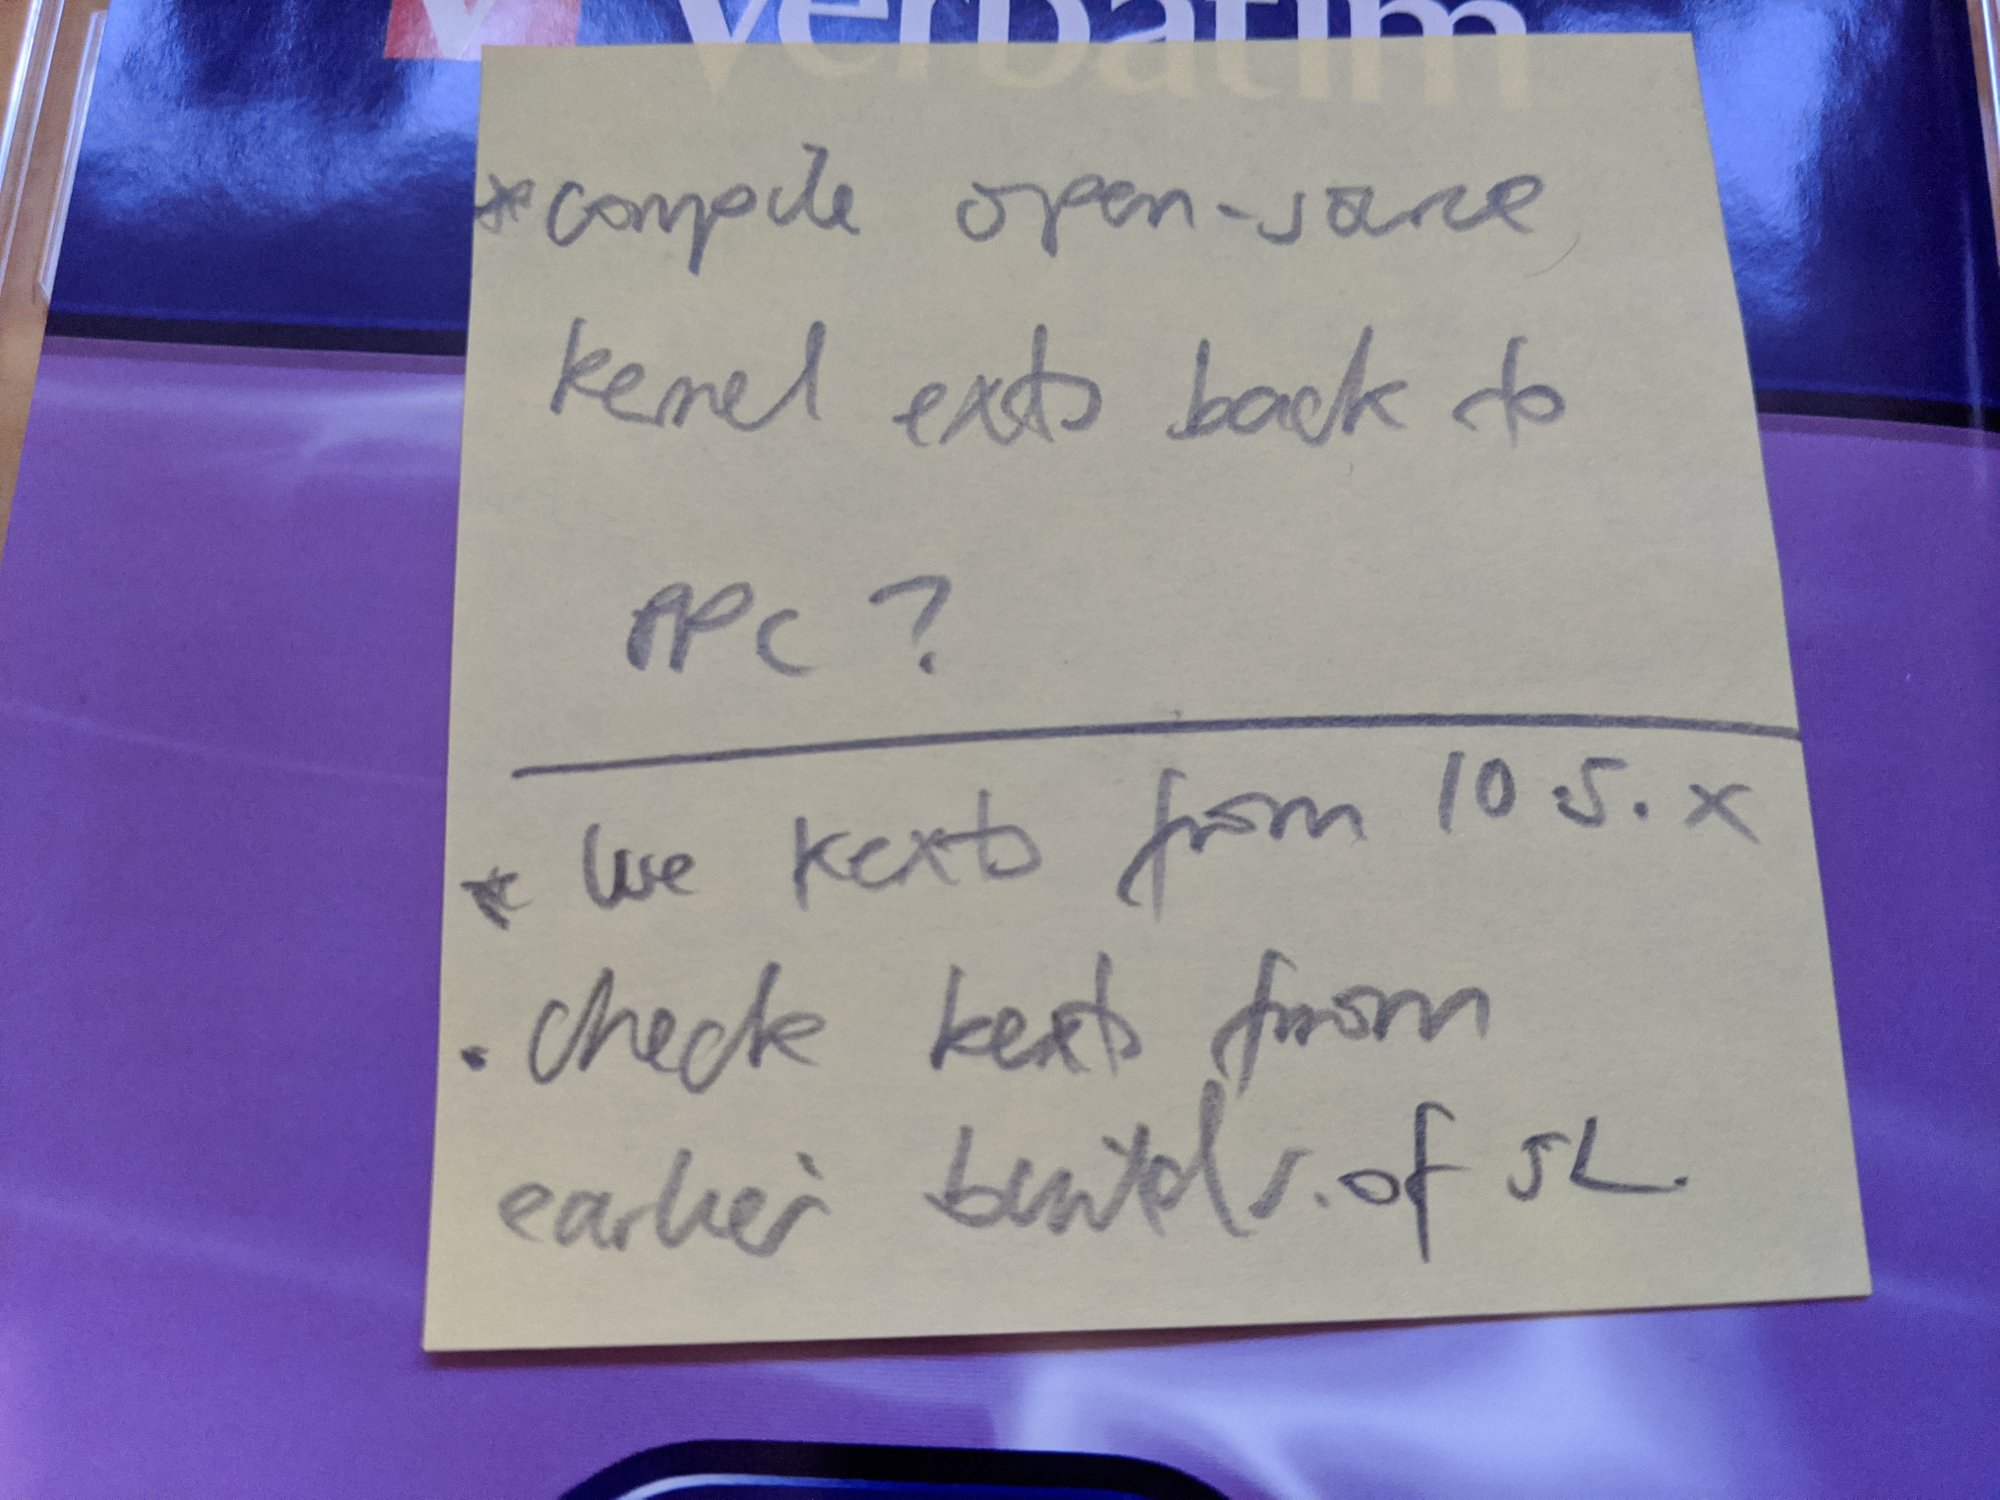 verbatim
*compile open-source
kernel exts back to
PPC ?
* use kexts from 10.5.x
. check kexts from
earlier builds. of SL.